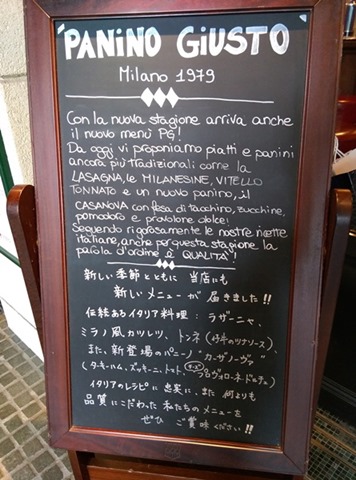 PANINO GIUSTO
Milano 1979
Con la nuova stagione arriva anche
il nuovo menù PG!
Da oggi vi proponiamo piatti e panini
ancora più tradizionali come la
LASAGNA, le MILANESINE, VITELLO
TONNATO e un nuovo panino, il
CASANOVA con fesa di tacchino, zucchine,
pomodoro e provolone dolce!
Seguendo rigorosamente le nostre ricette
italiane, anche per questa stagione la
parola d'ordine è QUALITÀ!
新しい季節とともに 当店にも
新しいメニューが 届きました!!
伝統あるイタリア料理:ラザーニャ、
ミラノ風カツレツ、トンネ(仔牛のツナソース)、
また、新登場のパニーノ"カーザノーヴァ"
(ターキーハム、ズッキーニ、トマト、チーズ プロヴォローネドルチェ)
イタリアのレシピに忠実に、また何よりも
品質にこだわった私たちのメニューを
ぜひ ご賞味ください!!